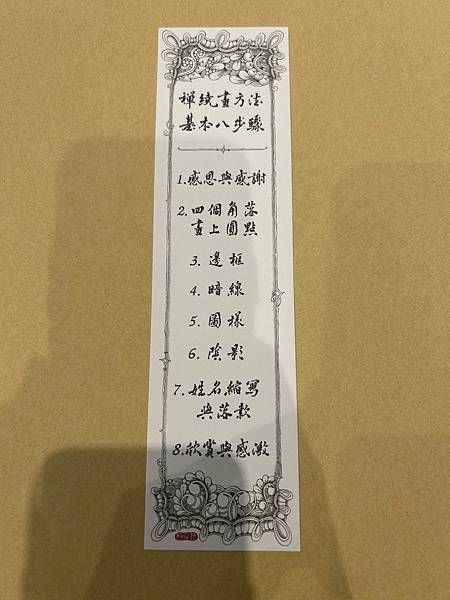 禪繞畫方法
基本八步驟
1.感恩與感謝
2.四個角落
畫上圓點
3.邊框
4.暗線
5.圖樣
6.陰影
7.姓名縮寫
與落款
8.欣賞與感激